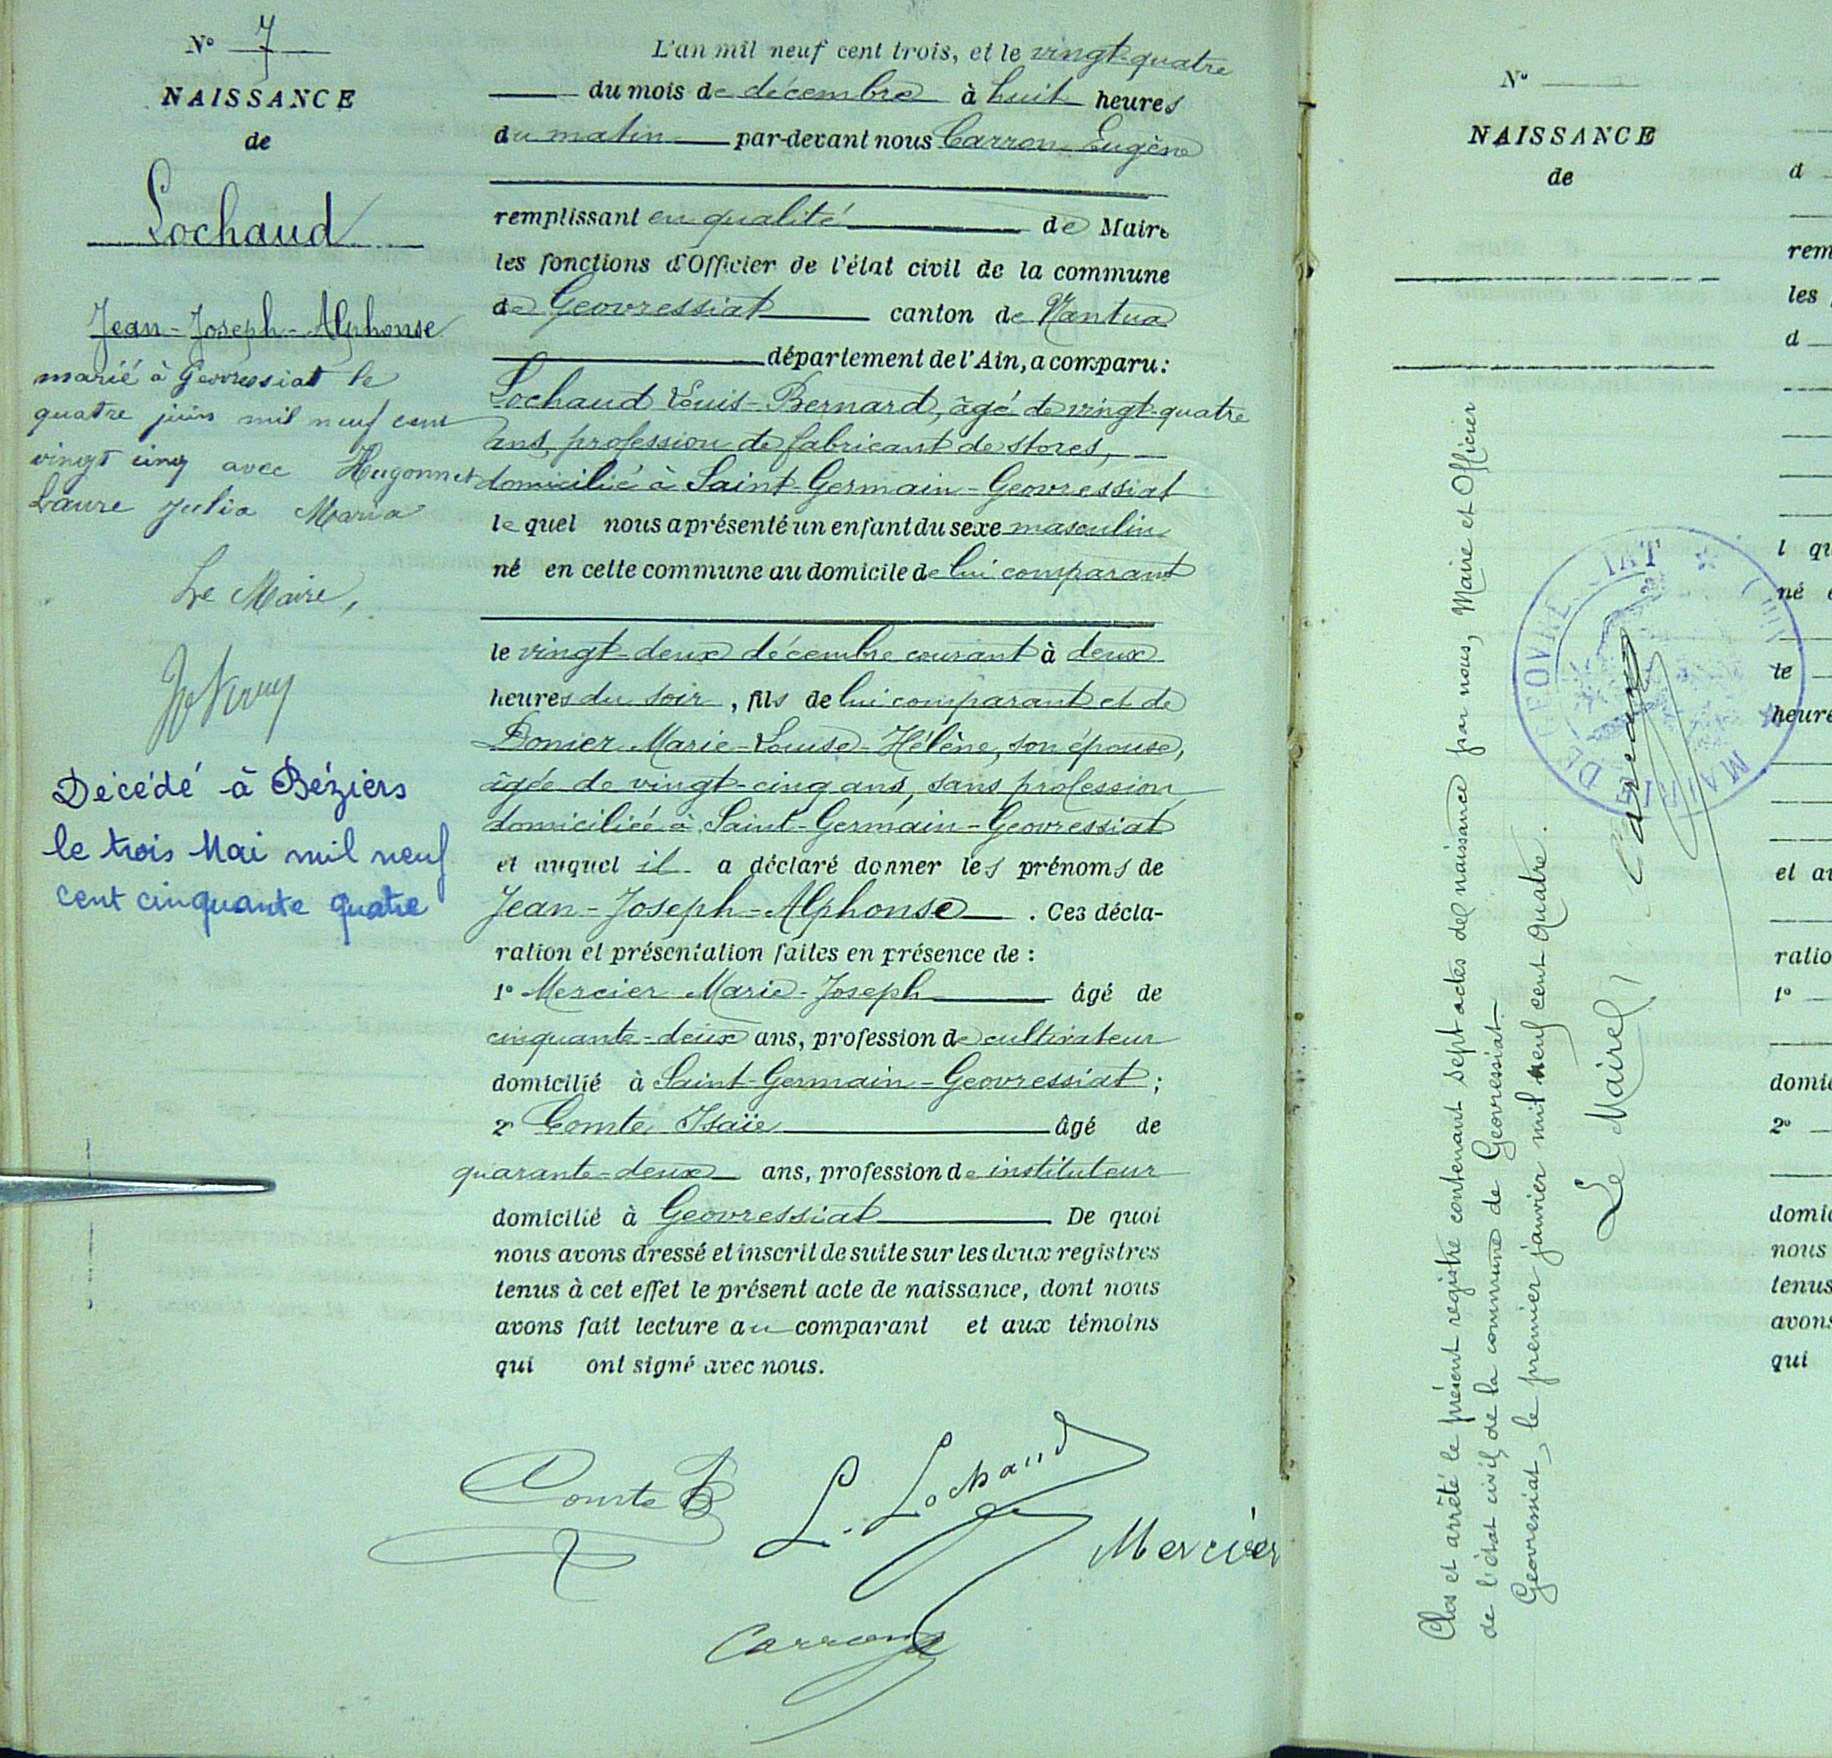 N° 7
NAISSANCE
de
Lochaud
Jean-Joseph-Alphonse
marié à Geovressiat le
quatre juin mil neuf cent
vingt cinq avec Hugonnet
Laure Julia Maria
Le Maire,
Décédé à Béziers
le trois Mai mil neuf
cent cinquante quatre
L'an mil neuf cent trois, et le vingt-quatre
du mois de décembre à huit heures
du matin par-devant nous Carron Eugène
remplissant en qualité de Maire
les fonctions d'Officier de l'état civil de la commune
de Geovressiat canton de Nantua
département de l'Ain, a comparu :
Lochaud Louis-Bernard, âgé de vingt-quatre
ans, profession de fabricant de stores,
domicilié à Saint-Germain-Geovressiat
lequel nous a présenté un enfant du sexe masculin
né en cette commune au domicile de lui comparant
le vingt-deux décembre courant à deux
heures du soir, fils de lui comparant et de
Donier Marie-Louise-Hélène, son épouse,
âgée de vingt-cinq ans, sans profession
domiciliée à Saint-Germain-Geovressiat
et auquel il a déclaré donner les prénoms de
Jean-Joseph-Alphonse. Ces décla-
ration et présentation faites en présence de :
1° Mercier Marie-Joseph âgé de
cinquante-deux ans, profession de cultivateur
domicilié à Saint-Germain-Geovressiat ;
2° Comte Isaïe âgé de
quarante-deux ans, profession de instituteur
domicilié à Geovressiat De quoi
nous avons dressé et inscrit de suite sur les deux registres
tenus à cet effet le présent acte de naissance, dont nous
avons fait lecture au comparant et aux témoins
qui ont signé avec nous.
Comte
L. Lochaud
Mercier
Carron
N°
NAISSANCE
de
Clos et arrêté le présent registre contenant sept actes de naissance par nous, Maire et Officier
de l'état civil de la commune de Geovressiat.
Geovressiat, le premier janvier mil neuf cent quatre.
Le Maire,
Carron
MAIRIE DE GEOVRESSIAT
d
rem
les
d
l qu
né e
le
heure
et au
ratio
1°
domic
2°
domic
nous
tenus
avons
qui